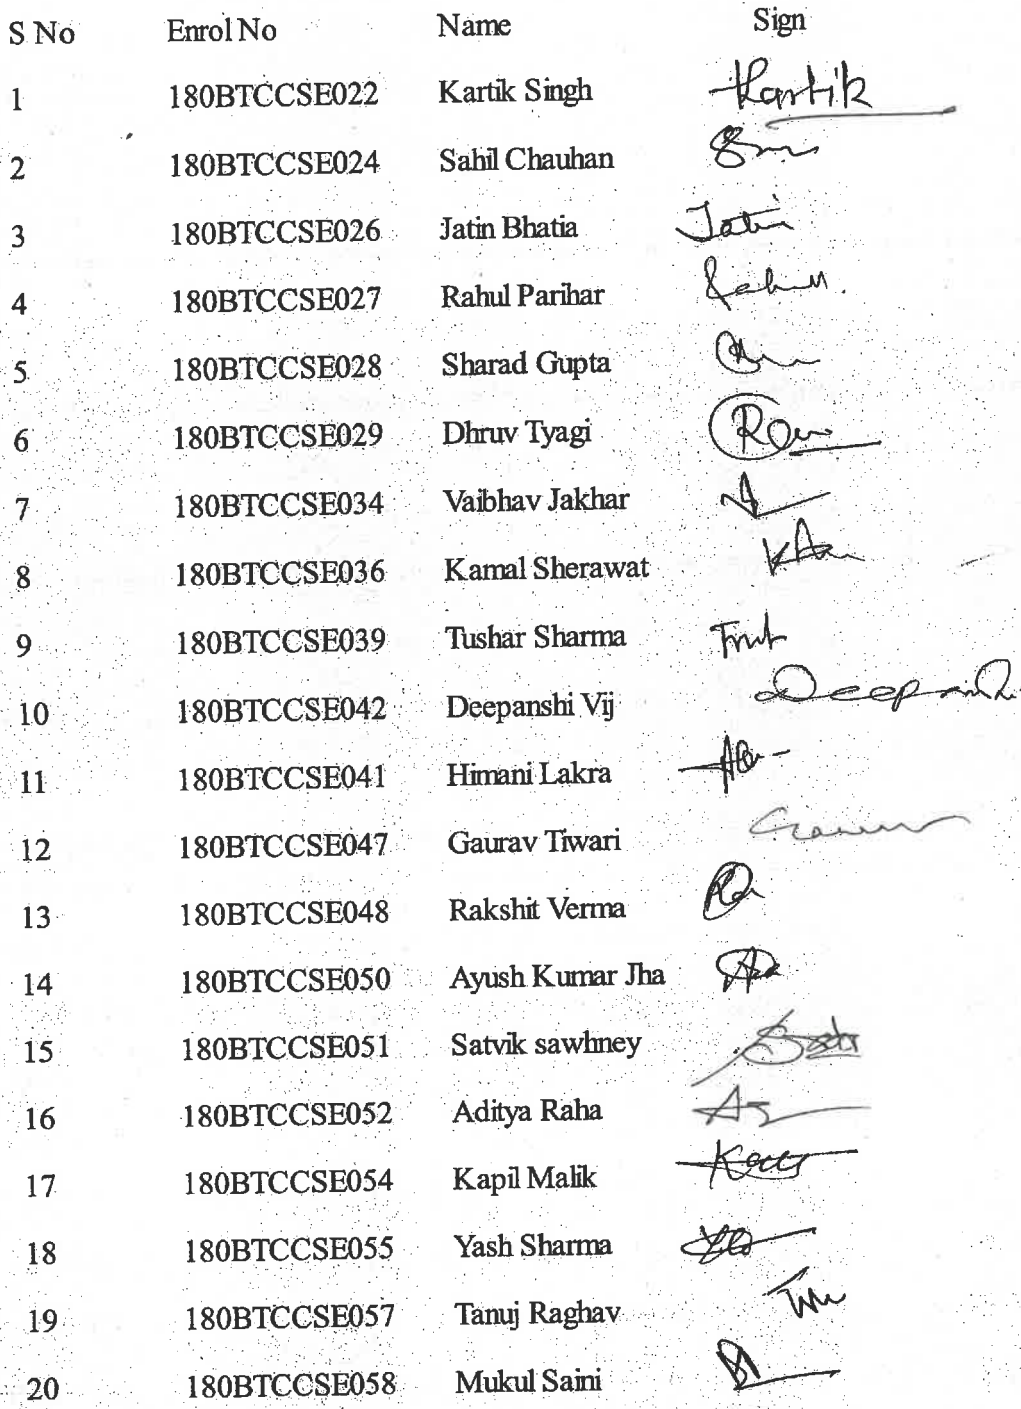 S No Enrol No Name Sign
1 180BTCCSE022 Kartik Singh Kartik
2 180BTCCSE024 Sahil Chauhan
3 180BTCCSE026 Jatin Bhatia Jatin
4 180BTCCSE027 Rahul Parihar Rahul.
5 180BTCCSE028 Sharad Gupta
6 180BTCCSE029 Dhruv Tyagi
7 180BTCCSE034 Vaibhav Jakhar
8 180BTCCSE036 Kamal Sherawat
9 180BTCCSE039 Tushar Sharma
10 180BTCCSE042 Deepanshi Vij
11 180BTCCSE041 Himani Lakra
12 180BTCCSE047 Gaurav Tiwari
13 180BTCCSE048 Rakshit Verma
14 180BTCCSE050 Ayush Kumar Jha
15 180BTCCSE051 Satvik sawhney
16 180BTCCSE052 Aditya Raha
17 180BTCCSE054 Kapil Malik
18 180BTCCSE055 Yash Sharma
19 180BTCCSE057 Tanuj Raghav
20 180BTCCSE058 Mukul Saini